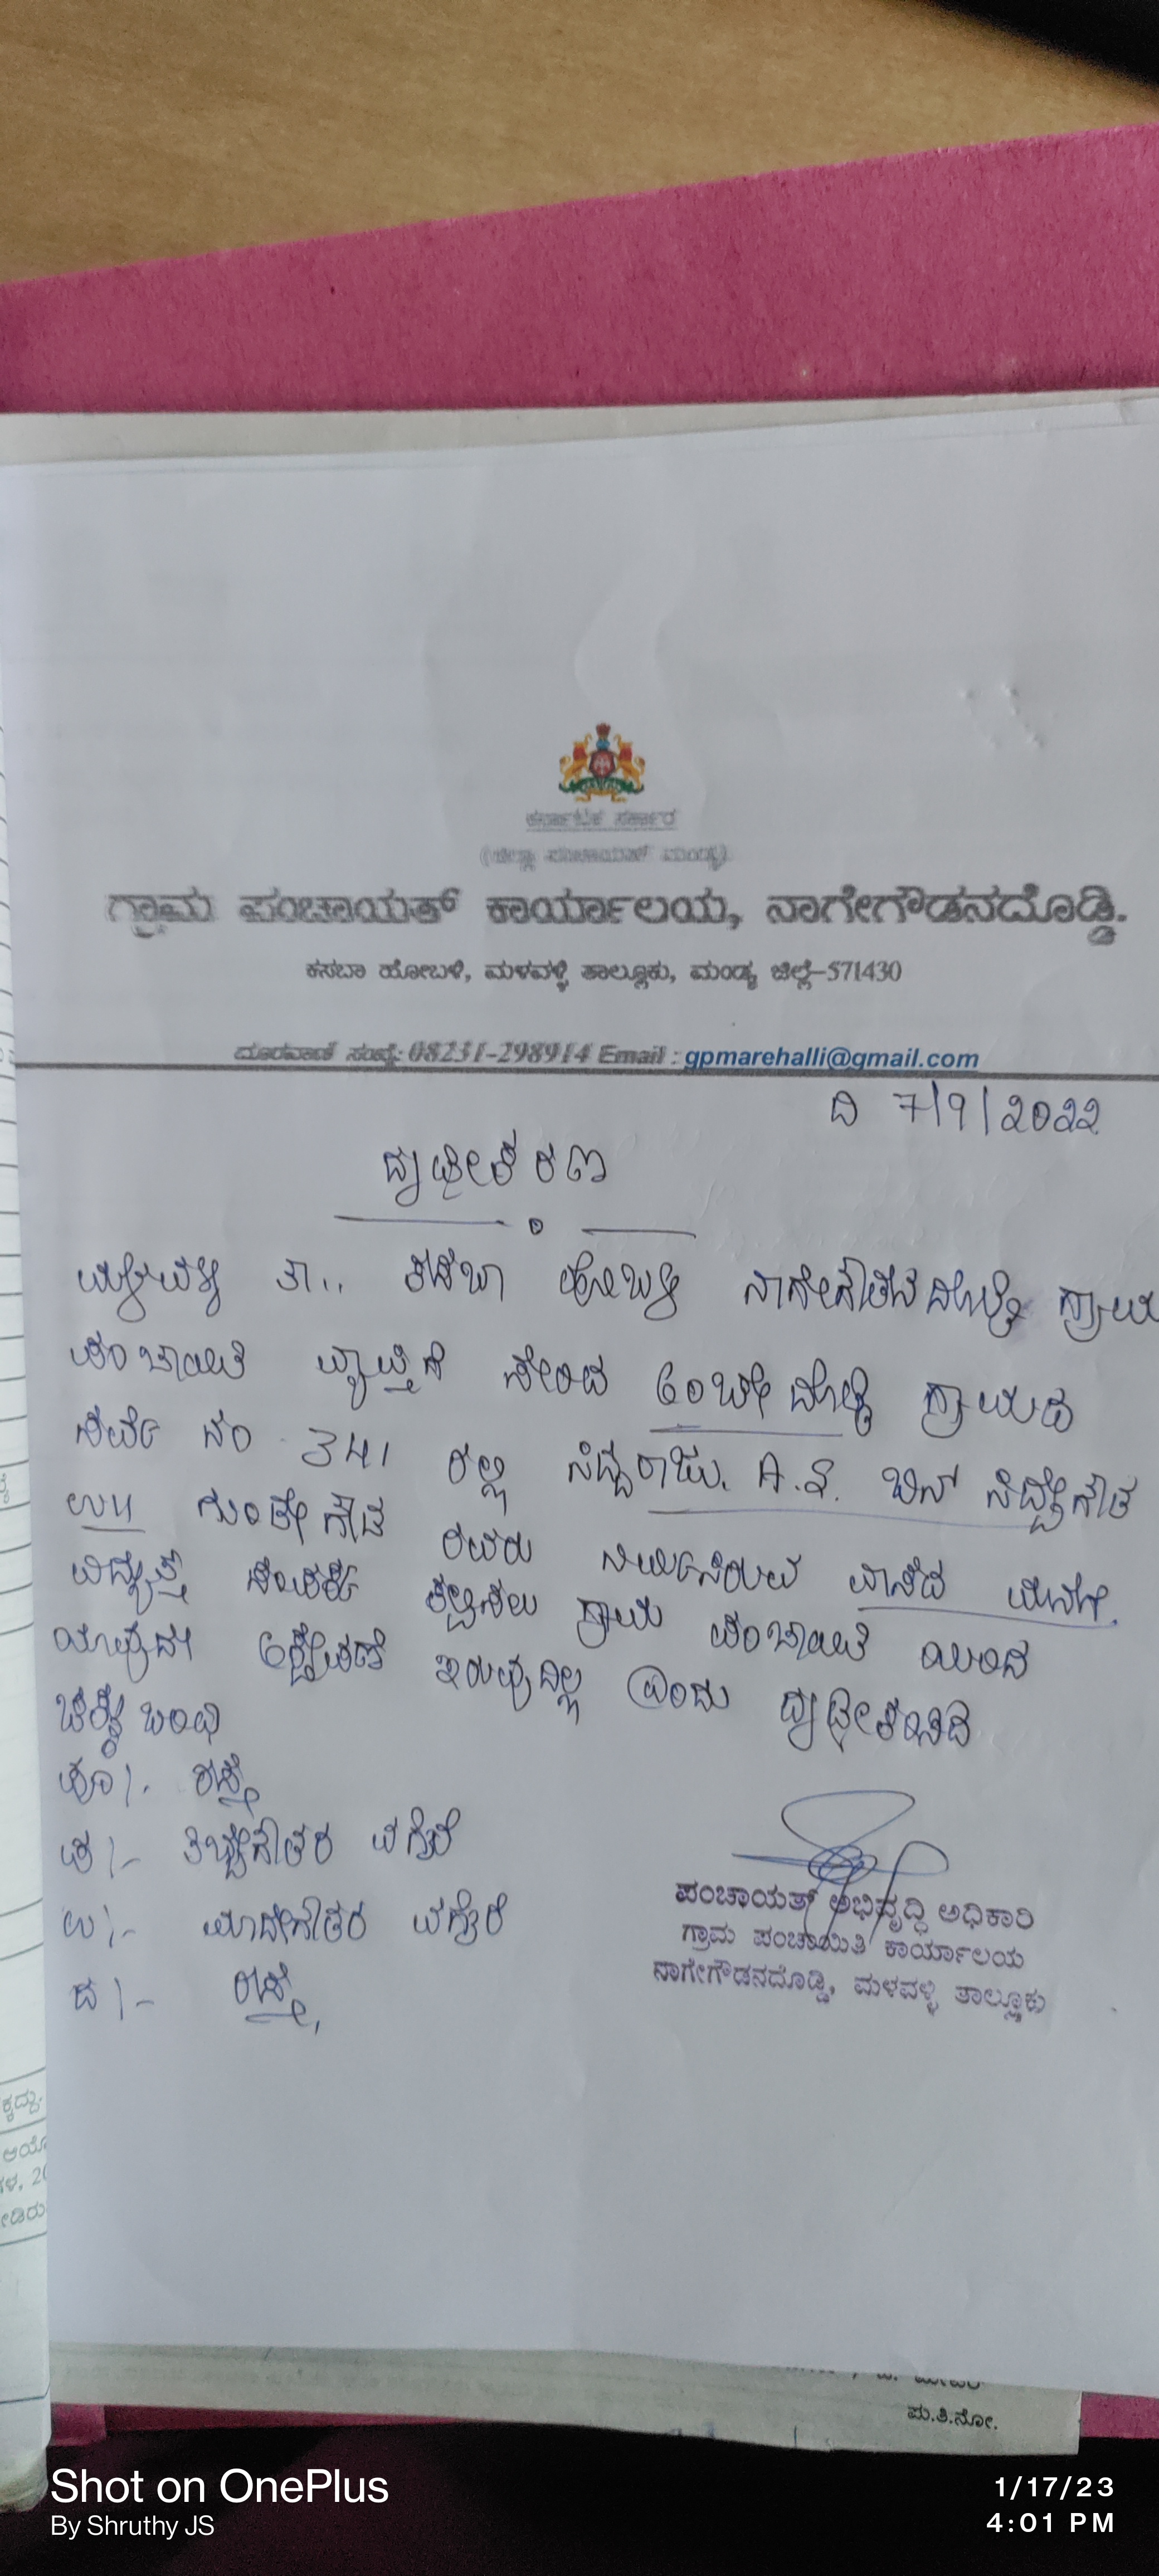 ಕರ್ನಾಟಕ ಸರ್ಕಾರ
(ಜಿಲ್ಲಾ ಪಂಚಾಯತ್ ಮಂಡ್ಯ)
ಗ್ರಾಮ ಪಂಚಾಯತ್ ಕಾರ್ಯಾಲಯ, ನಾಗೇಗೌಡನದೊಡ್ಡಿ.
ಕಸಬಾ ಹೋಬಳಿ, ಮಳವಳ್ಳಿ ತಾಲ್ಲೂಕು, ಮಂಡ್ಯ ಜಿಲ್ಲೆ-571430
ದೂರವಾಣಿ ಸಂಖ್ಯೆ: 08231-298914 Email : gpmarehalli@gmail.com
ದಿ 7/9/2022
ದೃಢೀಕರಣ
ಮಳವಳ್ಳಿ ತಾ.. ಕಸಬಾ ಹೋಬಳಿ ನಾಗೇಗೌಡನದೊಡ್ಡಿ ಗ್ರಾಮ
ಪಂಚಾಯಿತಿ ವ್ಯಾಪ್ತಿಗೆ ಸೇರಿದ ದೊಡ್ಡಿ ಗ್ರಾಮದ
ಸರ್ವೆ ನಂ 341 ರಲ್ಲಿ ಸಿದ್ದರಾಜು. A.S. ಬಿನ್ ಸಿದ್ದೇಗೌಡ
ಉ॥ ಗೌಡ ರವರು ನಿರ್ಮಿಸಿರುವ ವಾಸದ ಮನೆಗೆ
ವಿದ್ಯುತ್ ಸಂಪರ್ಕ ಕಲ್ಪಿಸಲು ಗ್ರಾಮ ಪಂಚಾಯಿತಿ ಯಿಂದ
ಯಾವುದೇ ಆಕ್ಷೇಪಣೆ ಇರುವುದಿಲ್ಲ ಎಂದು ದೃಢೀಕರಿಸಿದೆ
ಚಕ್ಕುಬಂದಿ
ಪೂ/- ರಸ್ತೆ
ಪ/- ವಗೈರೆ
ಉ/- ಮಾದೇಗೌಡರ ವಗೈರೆ
ದ/- ರಸ್ತೆ
ಪಂಚಾಯತ್ ಅಭಿವೃದ್ಧಿ ಅಧಿಕಾರಿ
ಗ್ರಾಮ ಪಂಚಾಯಿತಿ ಕಾರ್ಯಾಲಯ
ನಾಗೇಗೌಡನದೊಡ್ಡಿ, ಮಳವಳ್ಳಿ ತಾಲ್ಲೂಕು
ಪು.ತಿ.ನೋ.
Shot on OnePlus
By Shruthy JS
1/17/23
4:01 PM